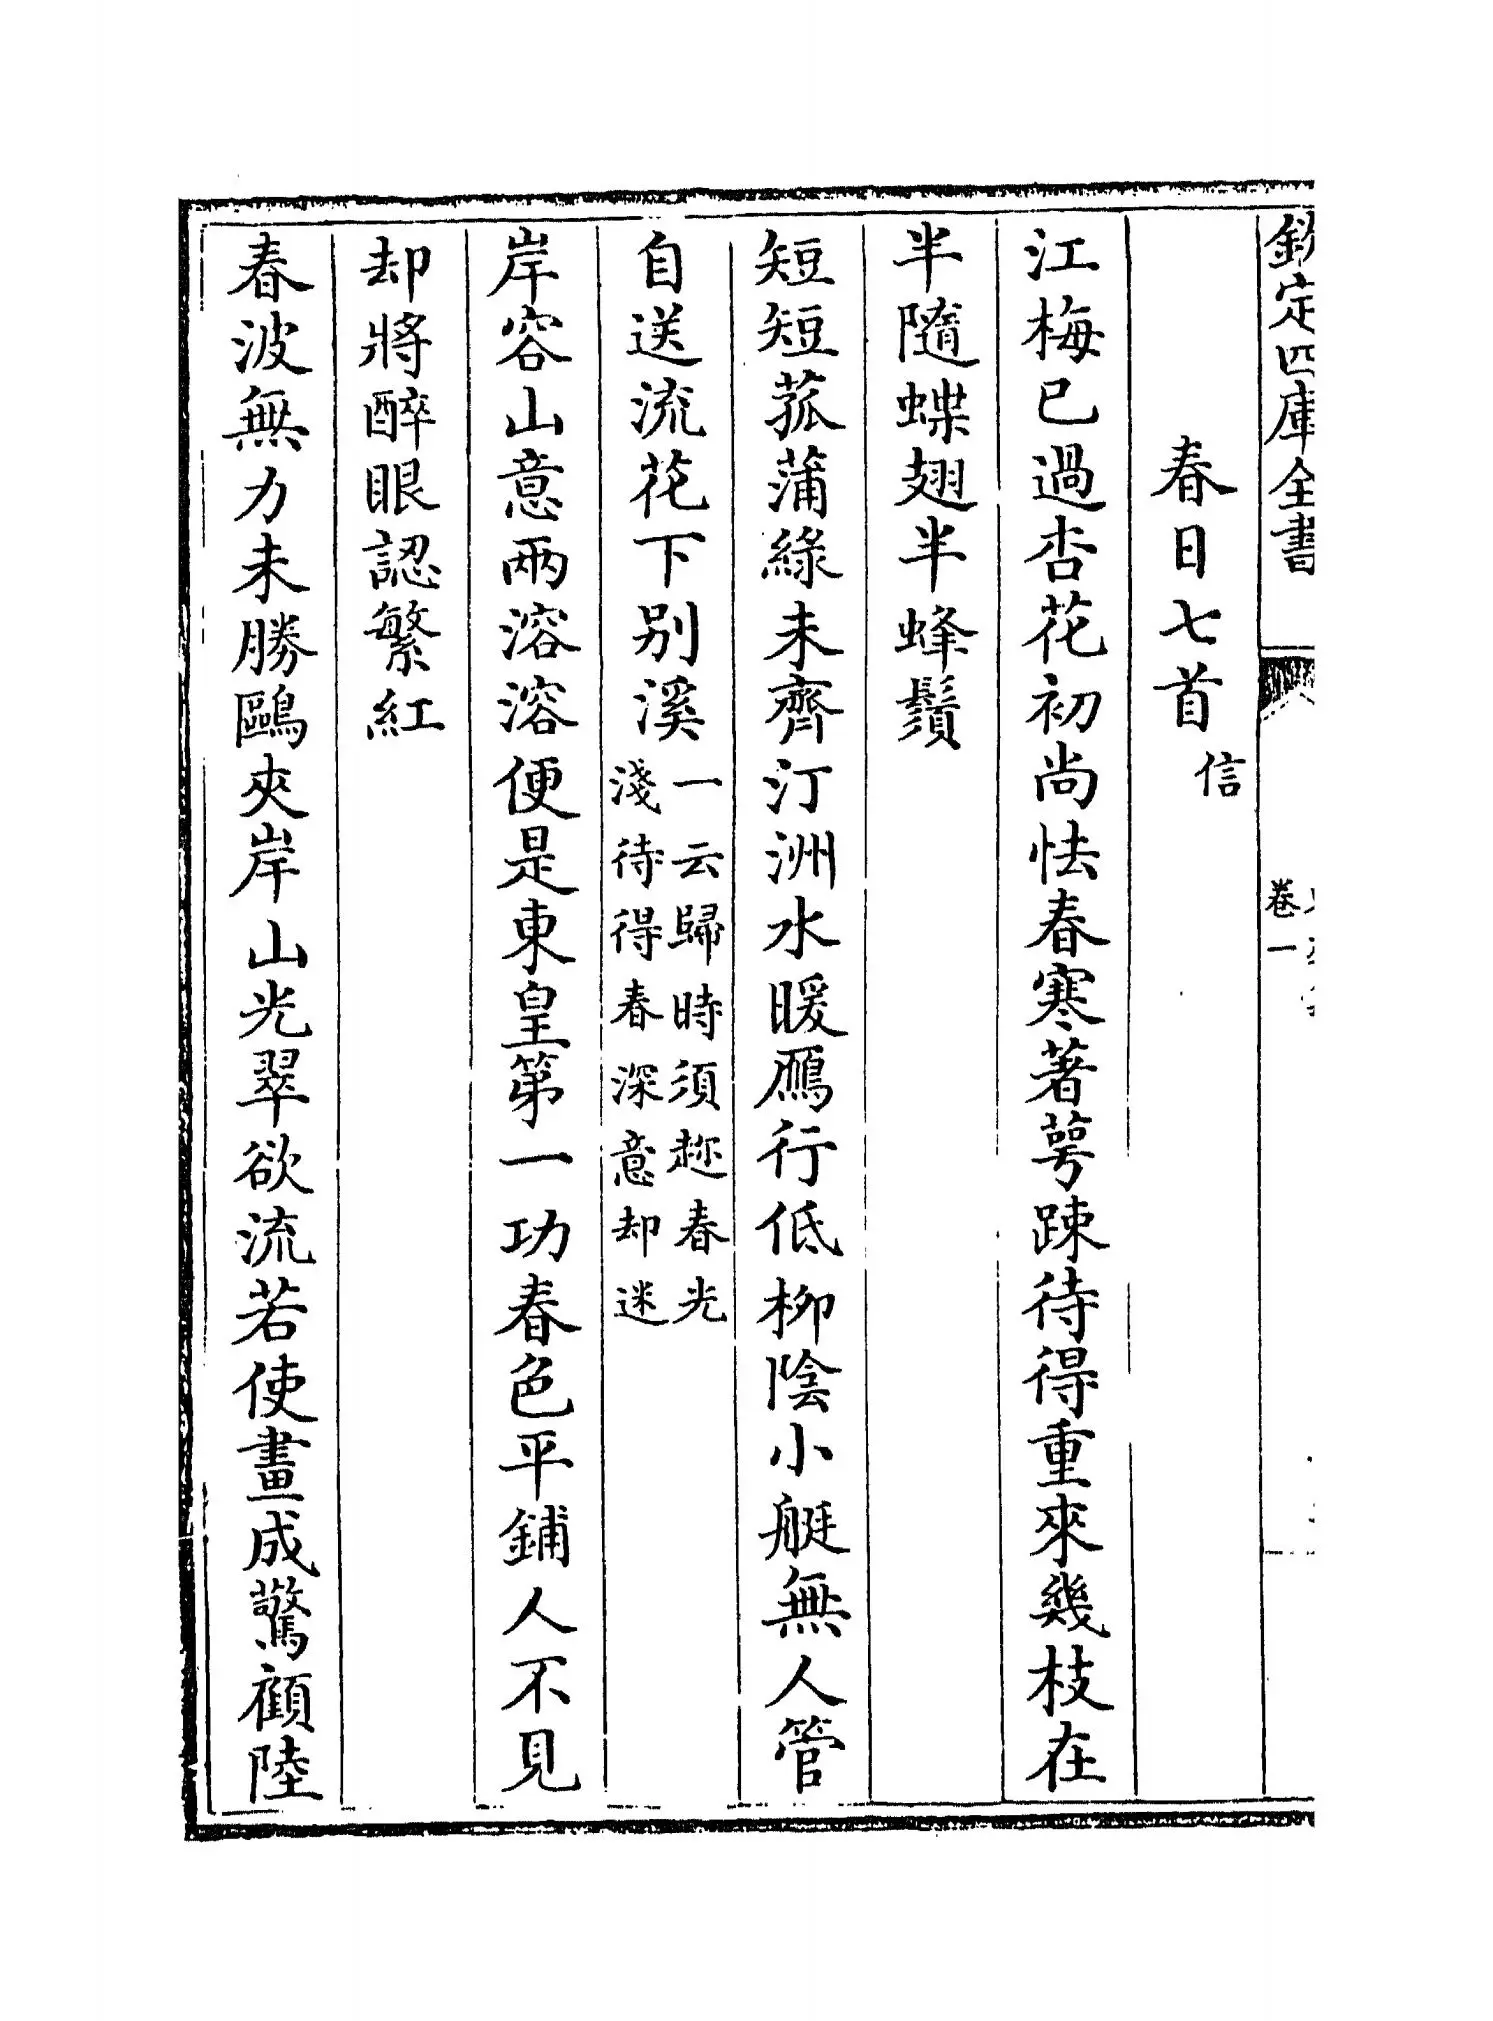 欽定四庫全書
卷一
春日七首信
江梅已過杏花初尚怯春寒著萼疎待得重來幾枝在
半隨蝶翅半蜂鬚
短短菰蒲綠未齊汀洲水暖鴈行低柳陰小艇無人管
自送流花下別溪一云歸時須趂春光
淺待得春深意却迷
岸容山意兩溶溶便是東皇第一功春色平鋪人不見
却將醉眼認繁紅
春波無力未勝鷗夾岸山光翠欲流若使畫成驚顧陸